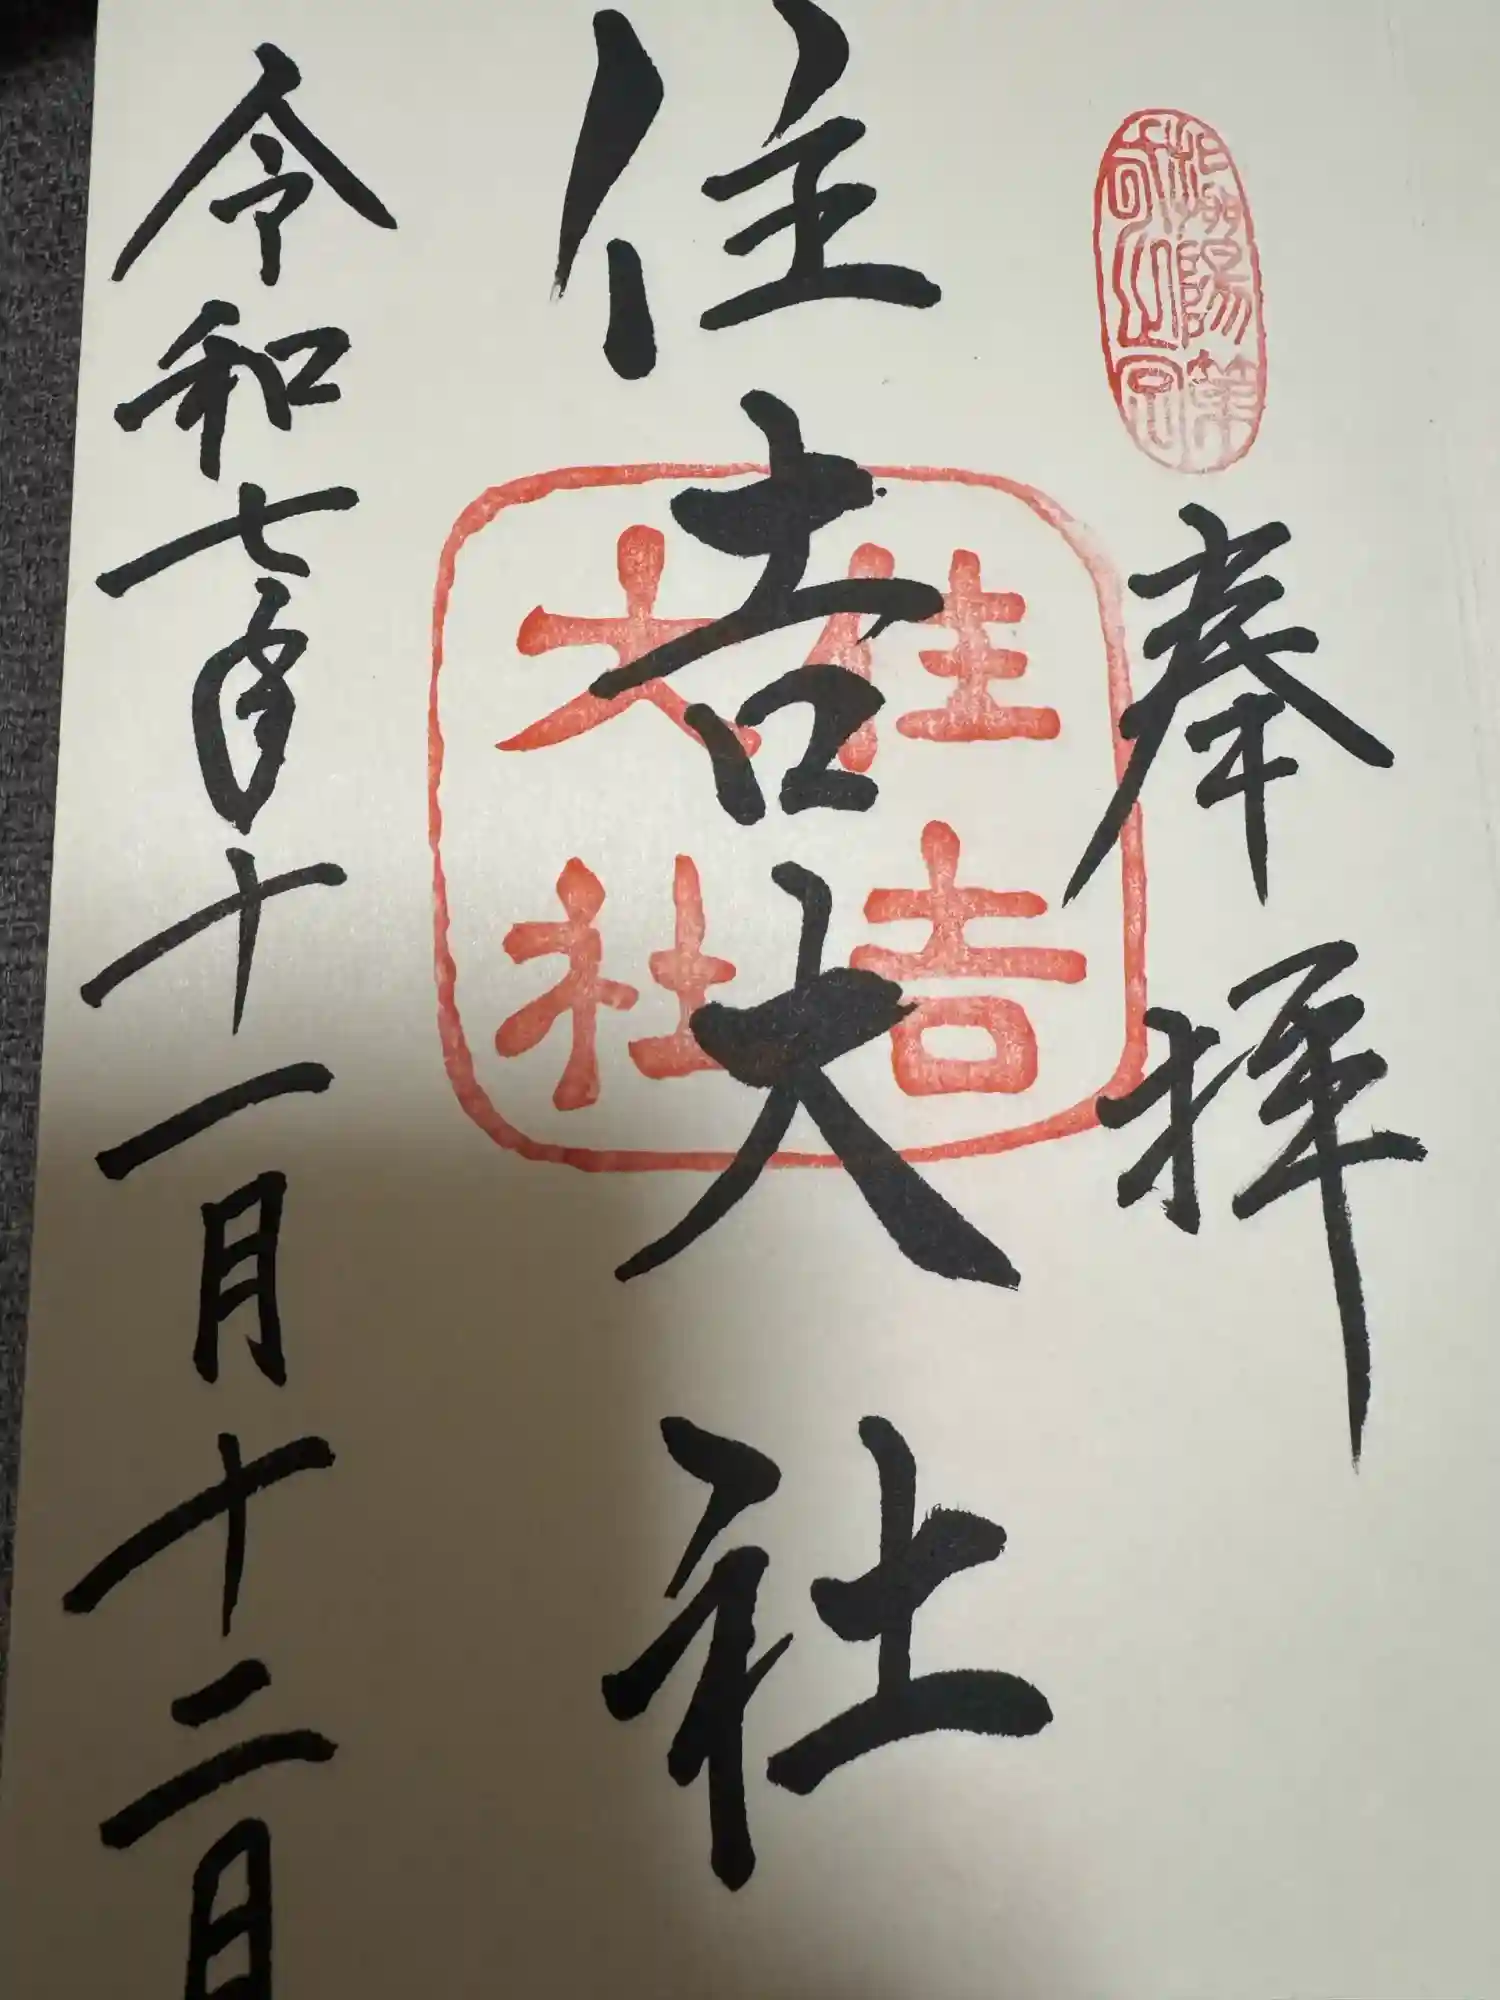 奉拝
住吉大社
住吉大社
令和七年十一月十二日